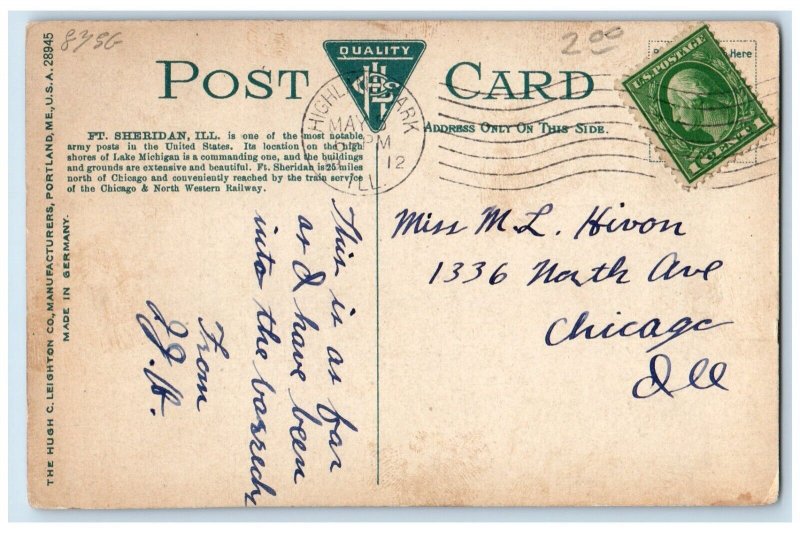 8756
2.00
QUALITY
POST CARD
ADDRESS ONLY ON THIS SIDE.
HIGHLAND PARK
MAY
PM
12
ILL.
U.S. POSTAGE
1 CENT 1
Here
FT. SHERIDAN, ILL. is one of the most notable
army posts in the United States. Its location on the high
shores of Lake Michigan is a commanding one, and the buildings
and grounds are extensive and beautiful. Ft. Sheridan is 25 miles
north of Chicago and conveniently reached by the train service
of the Chicago & North Western Railway.
THE HUGH C. LEIGHTON CO., MANUFACTURERS, PORTLAND, ME., U.S.A. 28945
MADE IN GERMANY.
This is as far
as I have been
into the barrack
From
J.H.
Miss M. L. Hivon
1336 North Ave
Chicago
Ill